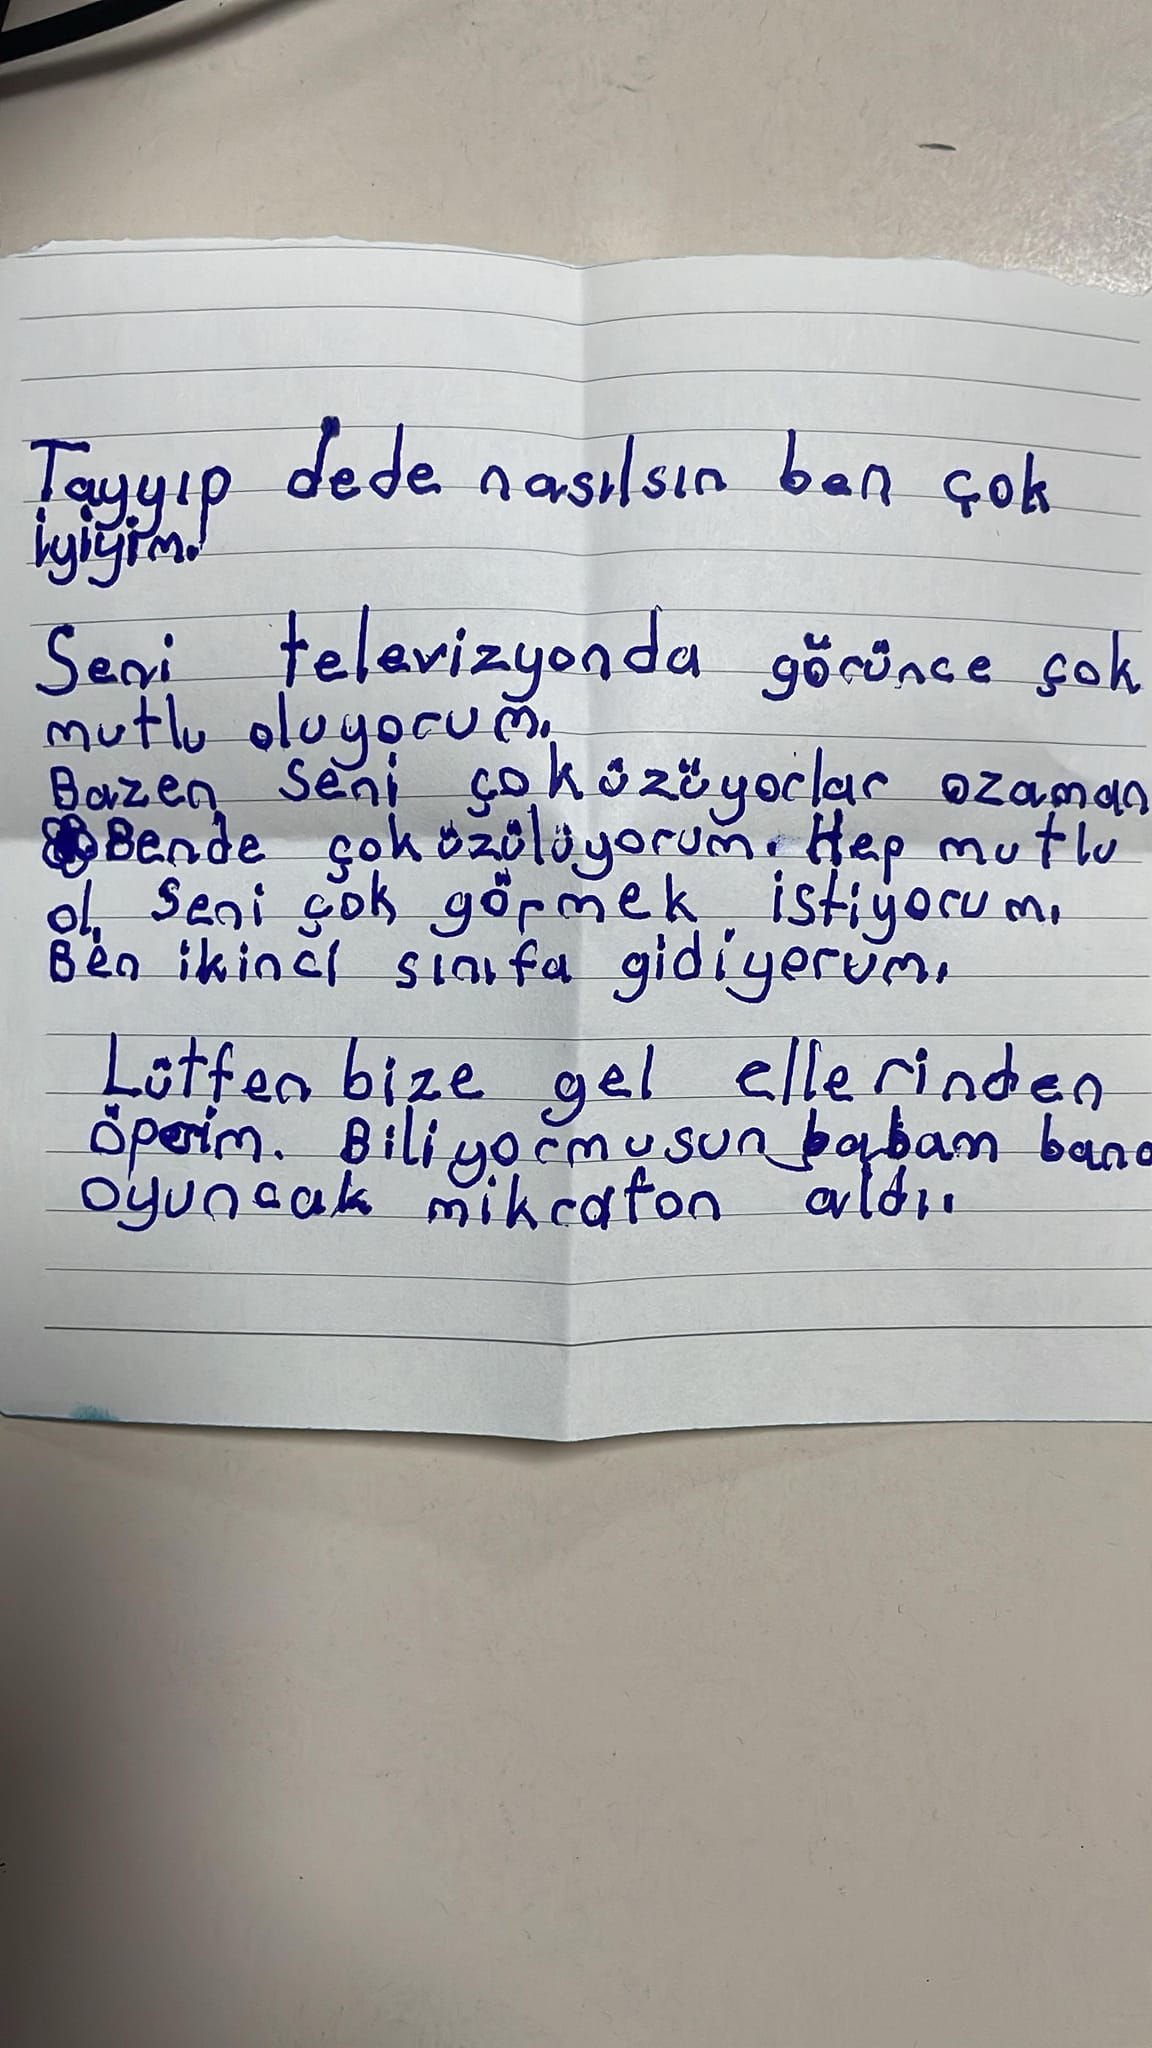 Tayyıp dede nasılsın ben çok
iyiyim.
Seni televizyonda görünce çok
mutlu oluyorum.
Bazen seni çok üzüyorlar ozaman
Bende çok üzülüyorum. Hep mutlu
ol. Seni çok görmek istiyorum.
Ben ikinci sınıfa gidiyorum.
Lütfen bize gel ellerinden
öperim. Biliyormusun babam bana
oyuncak mikrafon aldı.